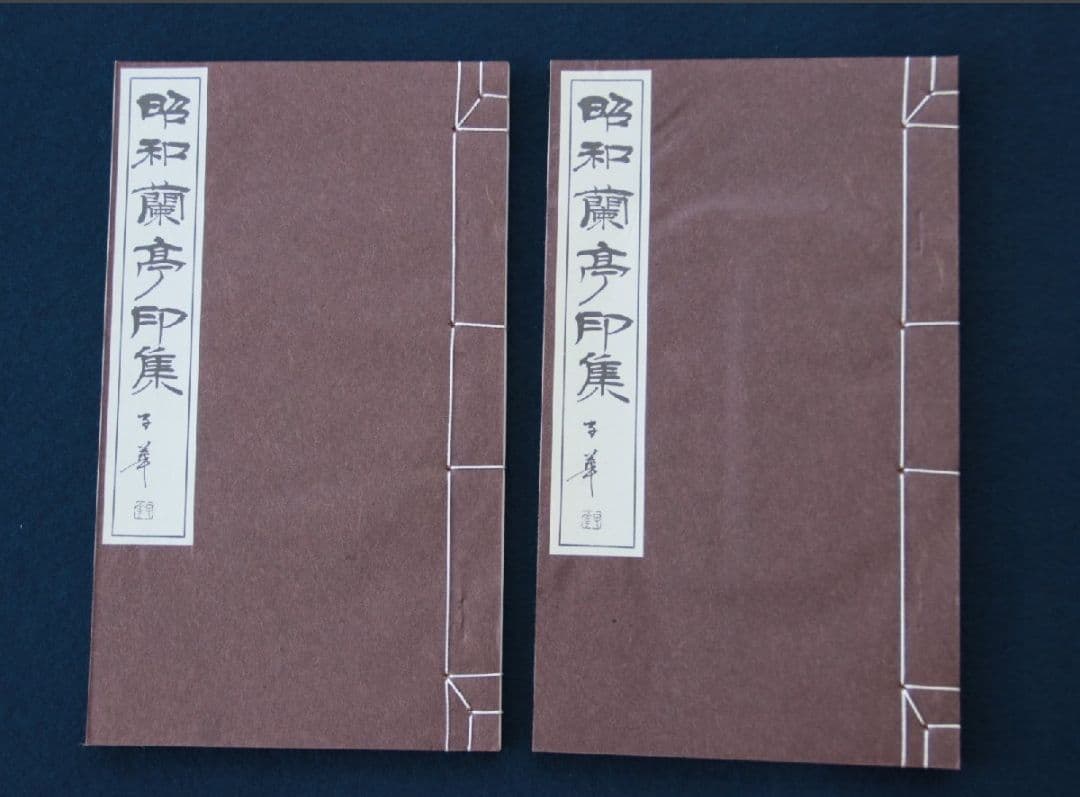 昭和蘭亭印集
子華
昭和蘭亭印集
子華